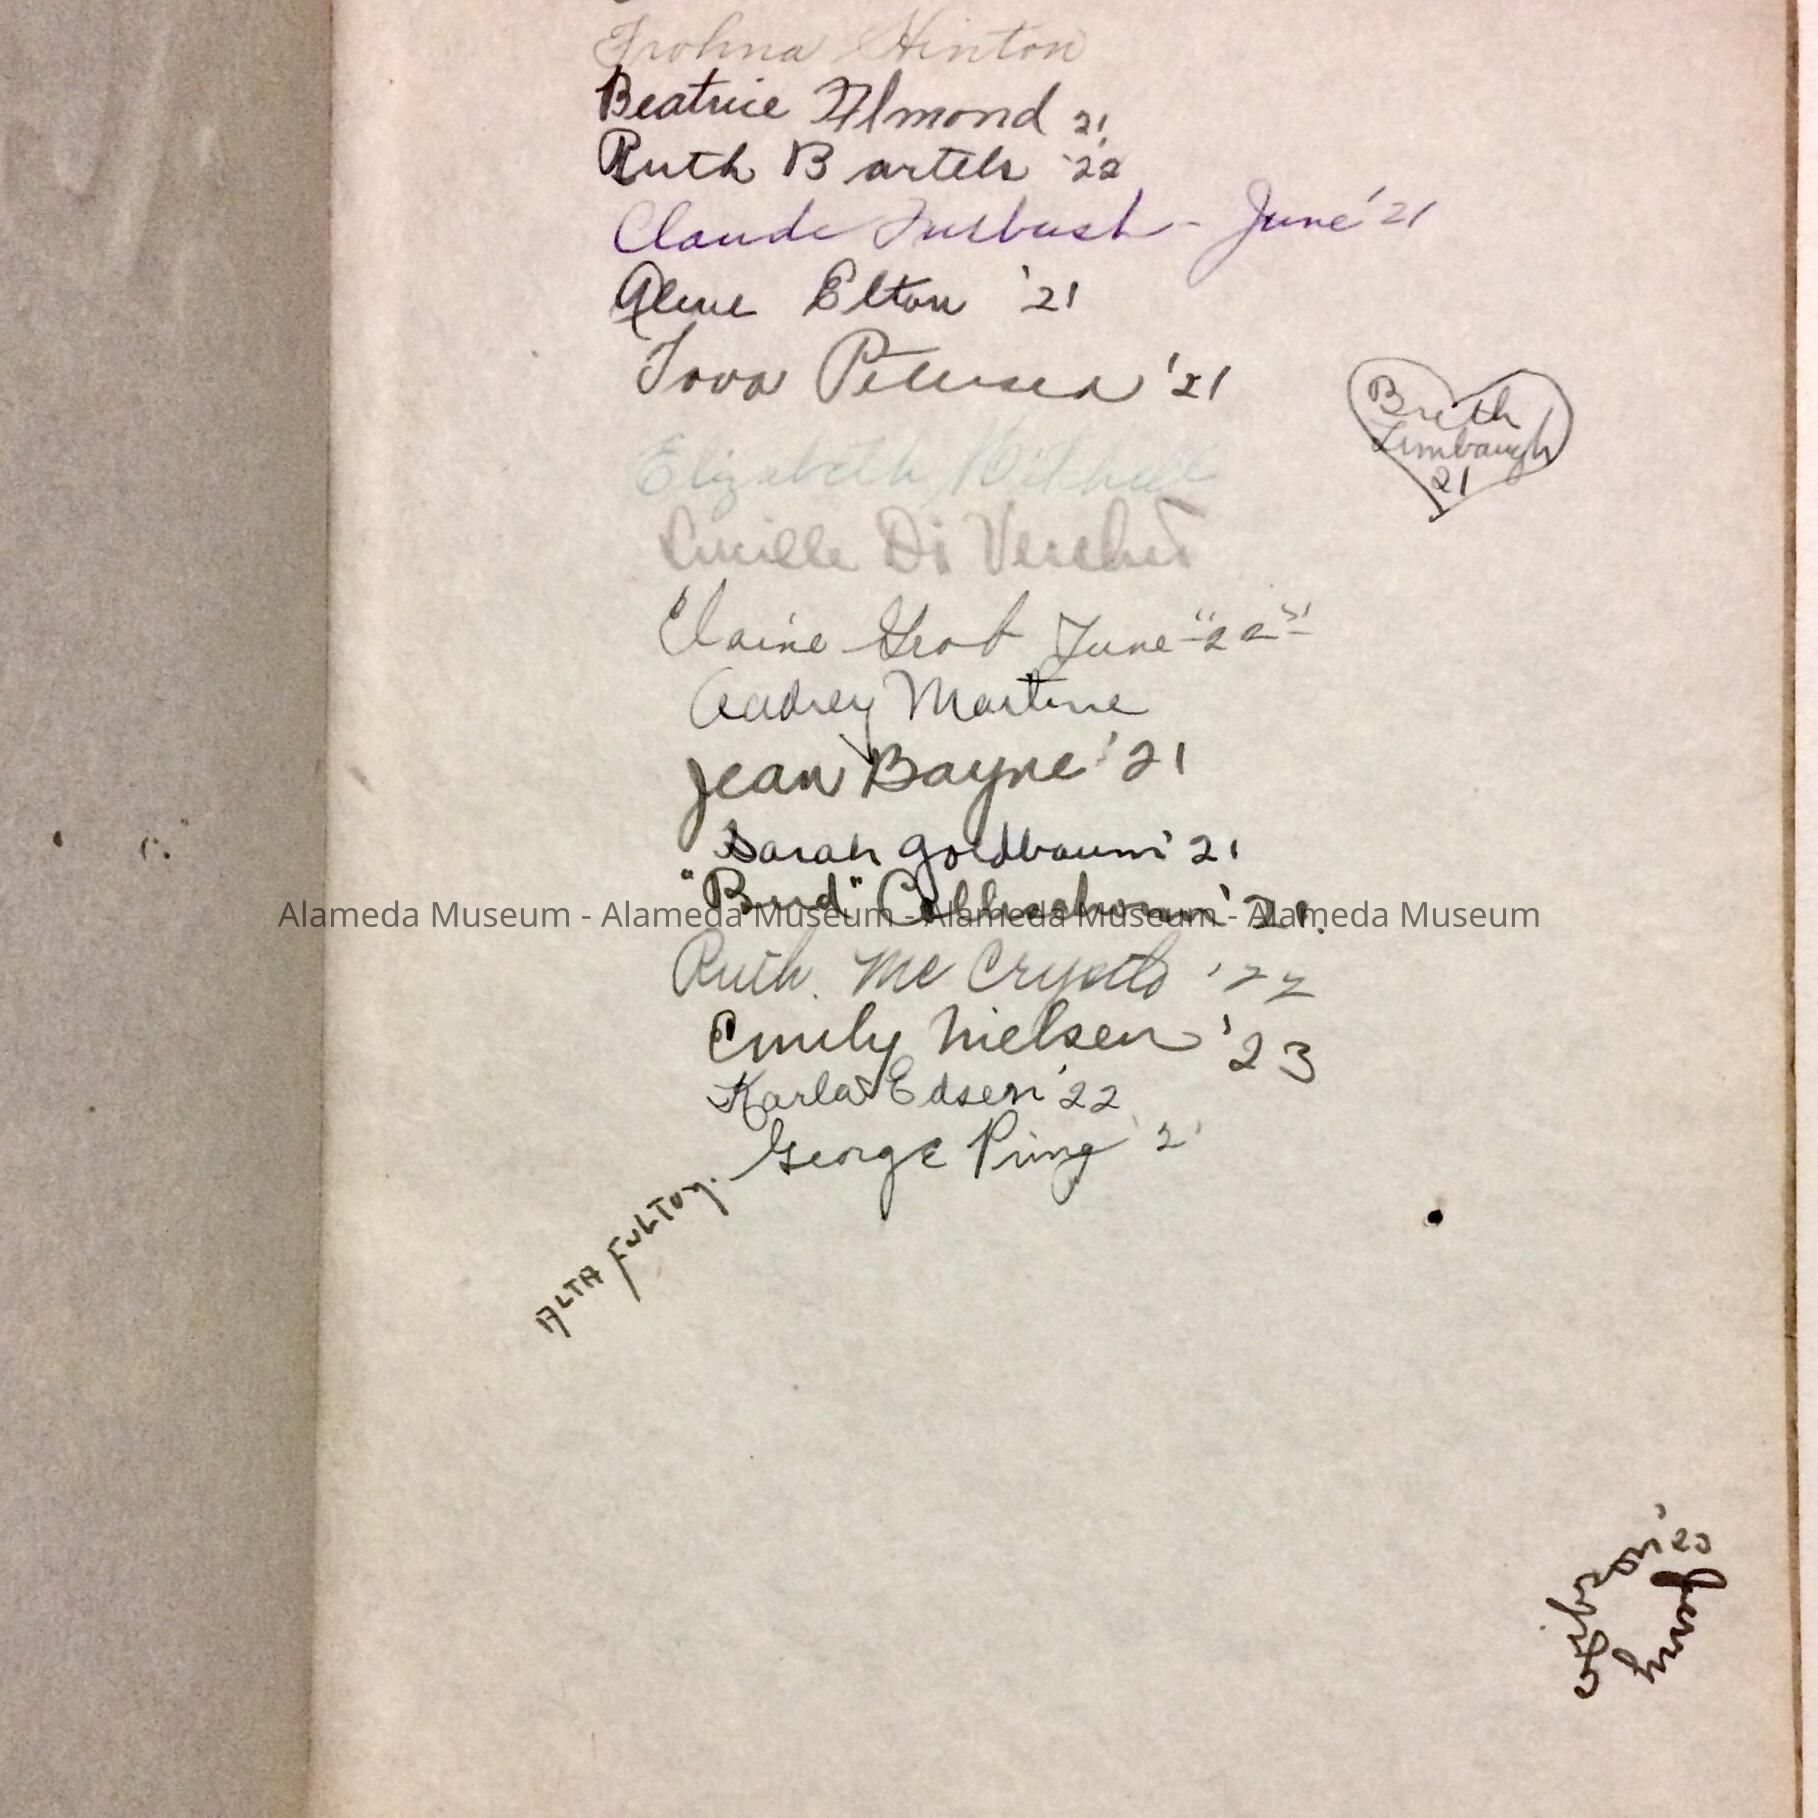 Frohna Hinton
Beatrice Almond 21
Ruth Bartels '22
Claude Furbush - June '21
Aline Elton '21
Tova Petersen '21
Breth
Limbaugh
21
Elizabeth Mitchell
Lucille Di Vecchio
Elaine Grob June "22"
Audrey Martine
Jean Bayne '21
Sarah Goldbaum '21
"Bud" '21.
Alameda Museum - Alameda Museum - Alameda Museum - Alameda Museum
Ruth. Mc '22
Emily Nielsen '23
Karla Edsen '22
George Pring '21
ALTA FULTON.
Gibson '20
Jerry